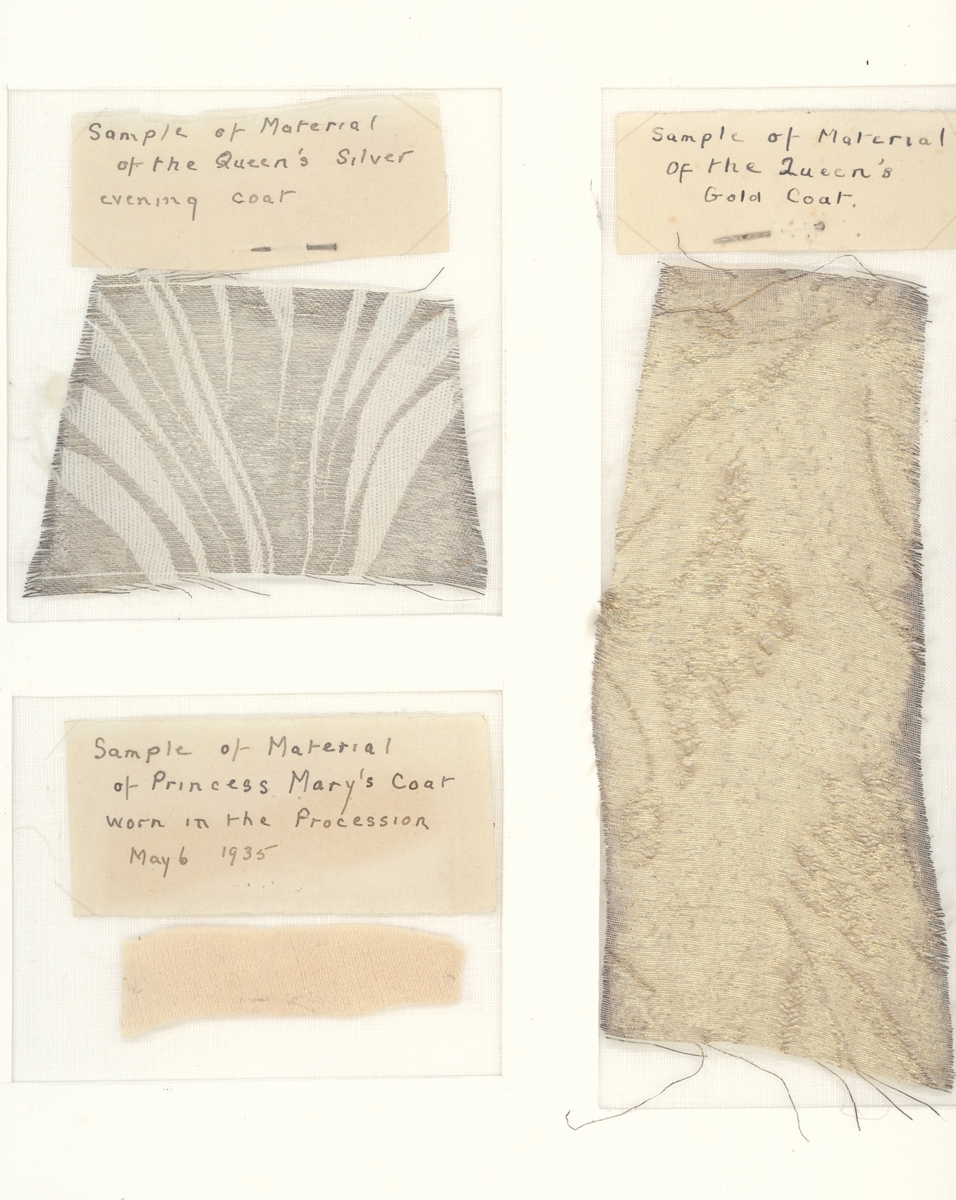 Sample of Material
of the Queen's Silver
evening coat
Sample of Material
Of the Queen's
Gold Coat.
Sample of Material
of Princess Mary's Coat
worn in the Procession
May 6 1935